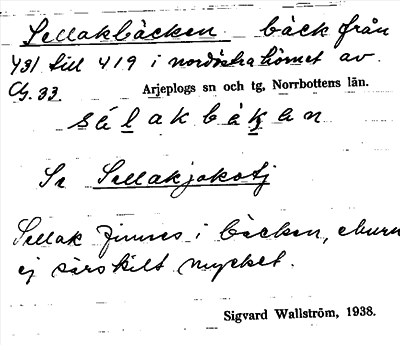 Sellakbäcken. bäck från
431 till 419 i nordöstra hörnet av
Cg. 33. Arjeplogs sn och tg, Norrbottens län.
sélakbäkan
Se Sellakjokotj
Sellak finnes i bäcken, ehuru
ej särskilt mycket.
Sigvard Wallström, 1938.